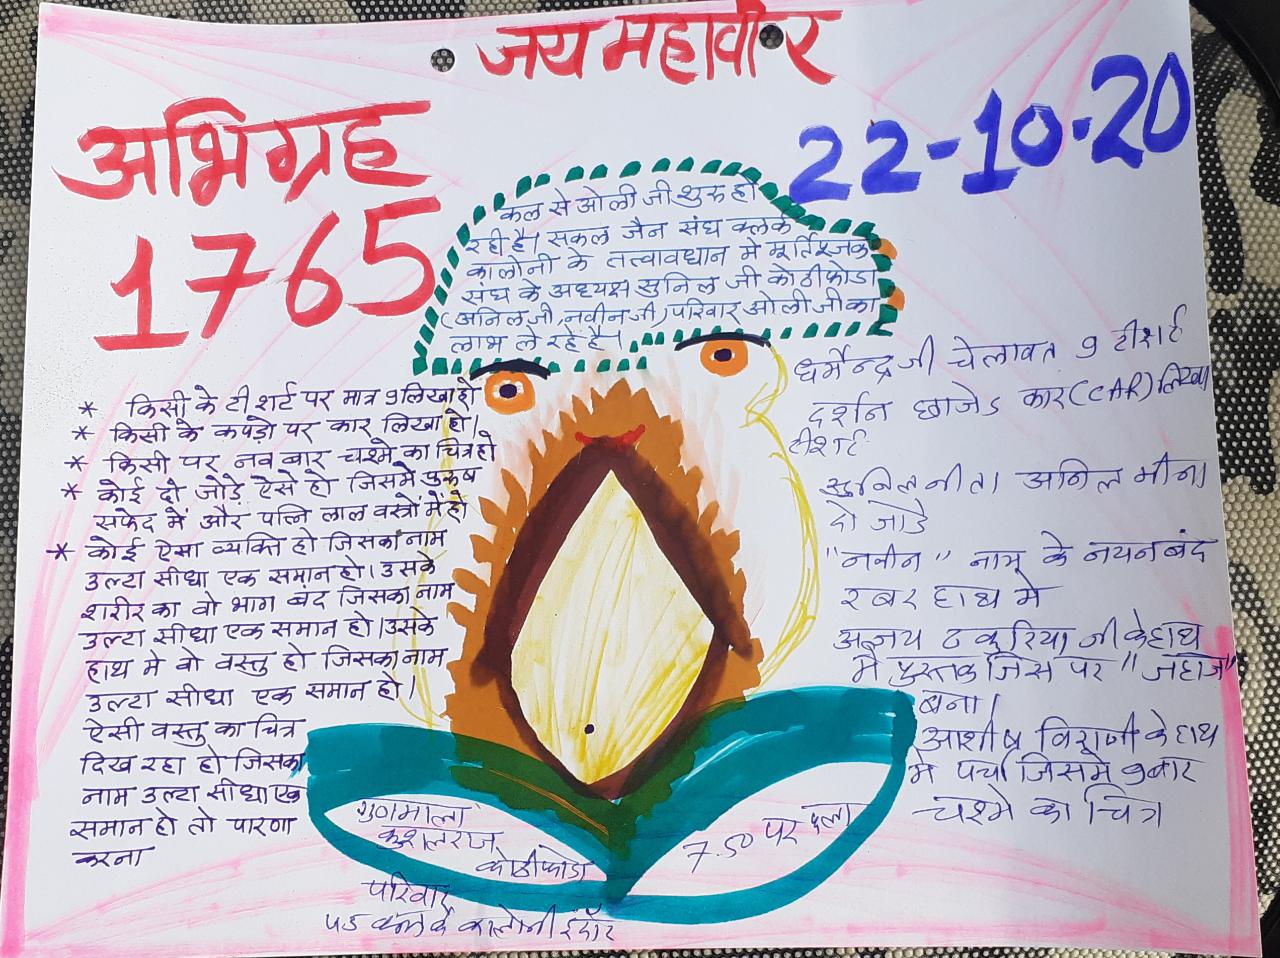 जय महावीर
अभिग्रह
1765
22-10-20
कल से ओली जी शुरु हो
रही है। सकल जैन संघ क्लर्क
कालोनी के तत्वावधान मे मूर्तिपूजक
संघ के अध्यक्ष सुनिल जी कोठीफोडा
(अनिल जी, नवीन जी) परिवार ओली जी का
लाभ ले रहे है।
* किसी के टी शर्ट पर मात्र 9 लिखा हो
* किसी के कपड़ो पर कार लिखा हो।
* किसी पर नव बार चश्मे का चित्र हो
* कोई दो जोडे ऐसे हो जिसमे पुरुष
सफेद में और पत्नि लाल वस्त्रों में हो
* कोई ऐसा व्यक्ति हो जिसका नाम
उल्टा सीधा एक समान हो। उसके
शरीर का वो भाग बंद जिसका नाम
उल्टा सीधा एक समान हो। उसके
हाथ मे वो वस्तु हो जिसका नाम
उल्टा सीधा एक समान हो।
ऐसी वस्तु का चित्र
दिख रहा हो जिसका
नाम उल्टा सीधा एक
समान हो तो पारणा
करना
धर्मेन्द्र जी चेलावत 9 टीशर्ट
दर्शन छाजेड कार (CAR) लिखा
टीशर्ट
सुनिल नीता अनिल मीना
दो जोडे
"नवीन" नाम के नयन बंद
रबर हाथ मे
अजय ठकुरिया जी के हाथ
मे पुस्तक जिस पर "जहाज"
बना।
आशीष विराणी के हाथ
मे पर्चा जिसमे 9 बार
चश्मे का चित्र
गुणमाला
कुशलराज
कोठीफोडा
परिवार
क्लर्क कालोनी इंदौर
7.50 पर